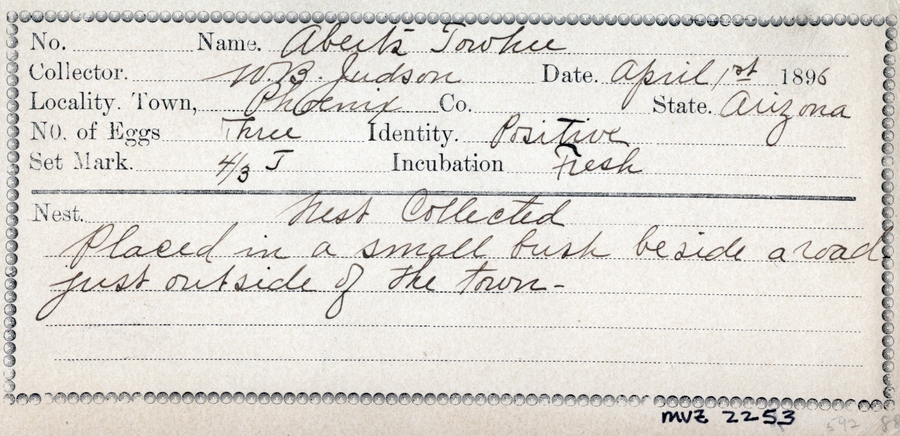 No. Name. Abert's Towhee
Collector. W. B. Judson Date. April 1st 1896
Locality. Town, Phoenix Co. State. Arizona
NO. of Eggs Three Identity. Positive
Set Mark. 4/3 J Incubation Fresh
Nest. Nest Collected
Placed in a small bush beside a road
just outside of the town-
MVZ 2253
592 88